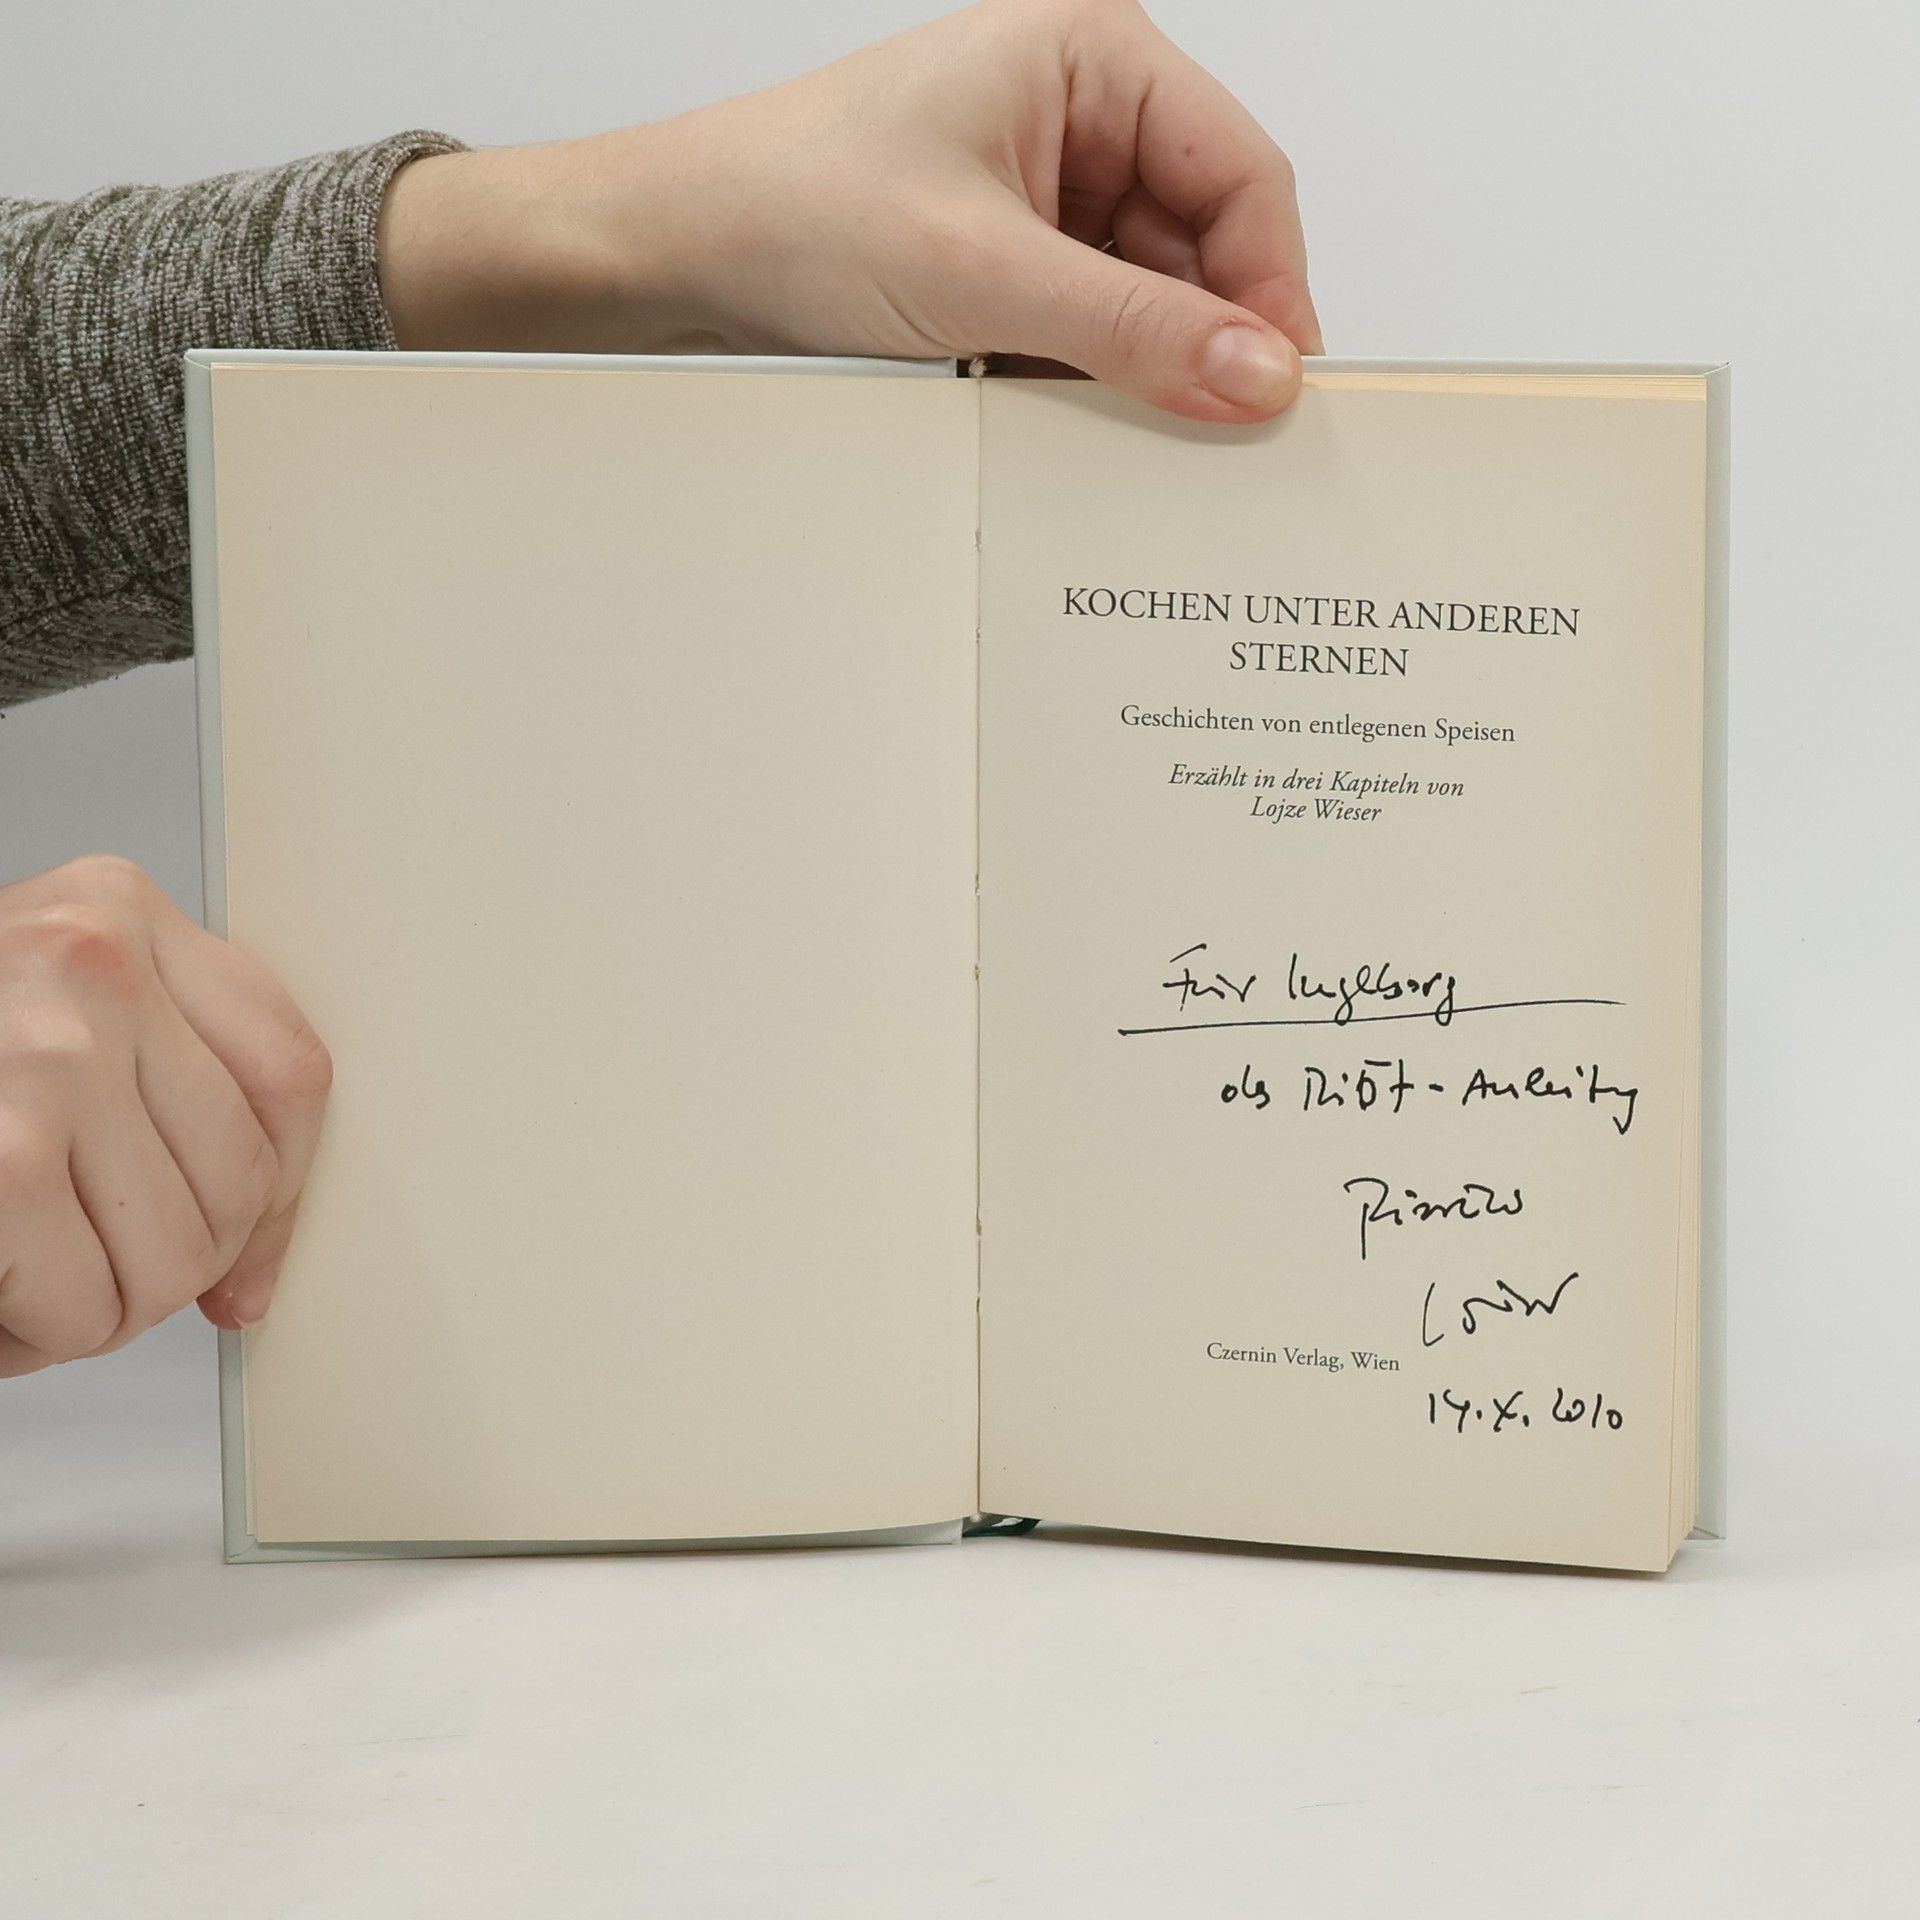 KOCHEN UNTER ANDEREN
STERNEN
Geschichten von entlegenen Speisen
Erzählt in drei Kapiteln von
Lojze Wieser
Für Ingeborg
als
Czernin Verlag, Wien
14.X.2010